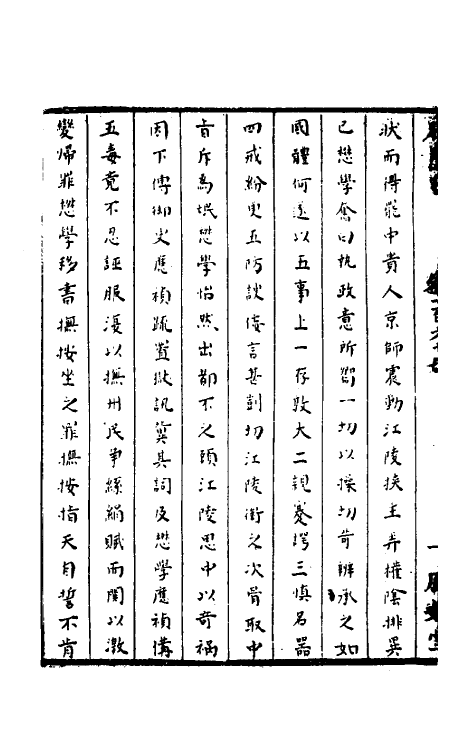 狀而得罷中貴人京師震動江陵挾主弄權陰排異
已懋學奮曰執政意所嚮一切以操切苛辦承之如
國體何遂以五事上一存敦大二親蹇諤三慎名器
四戒紛更五防諛佞言甚剴切江陵銜之次骨取中
旨斥為氓懋學怡然出都不之顧江陵思中以奇禍
因下傅御史應禎疏置獄訊冀其詞及懋學應禎備
五毒竟不忍誣服復以撫州民爭絲絹賦而閧以激
變歸罪懋學移書撫按坐之罪撫按指天自誓不肯